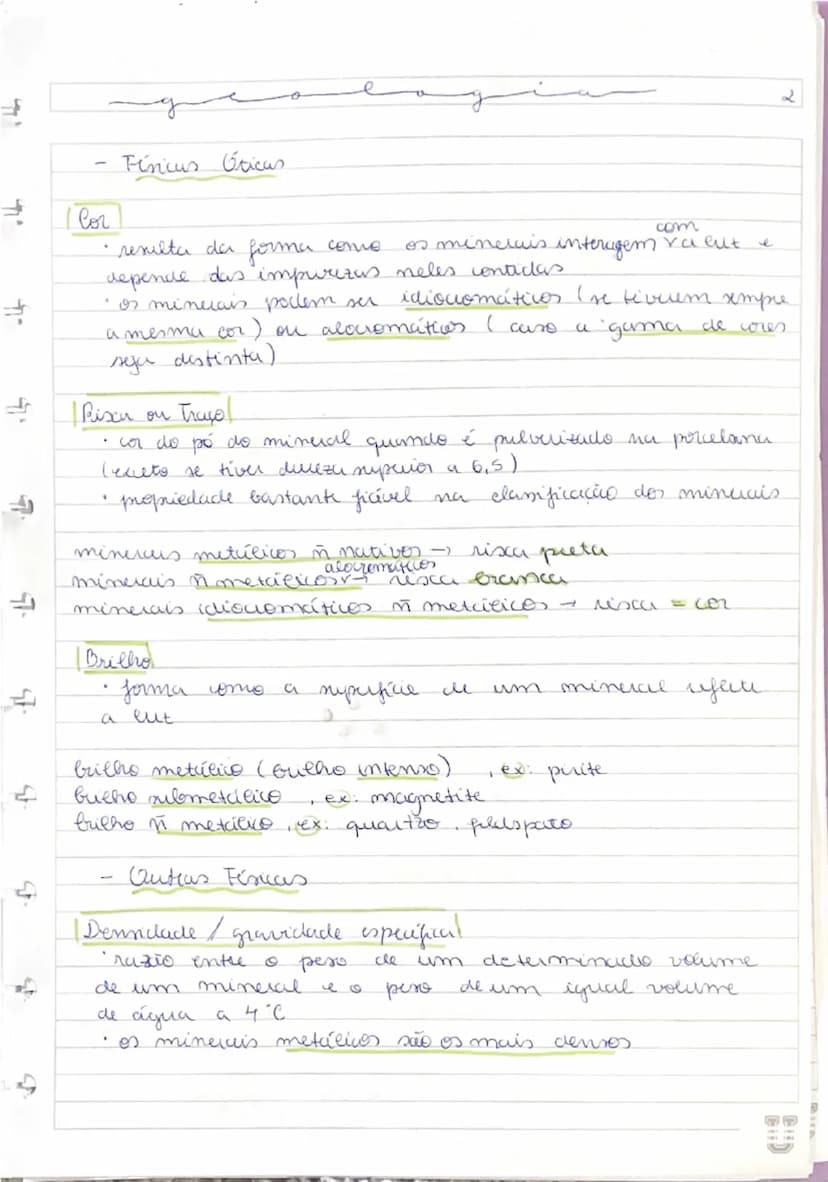 geologia 2
- Físicas Óticas
Cor
com
· resulta da forma como os minerais interagem v a luz e
depende das impurezas neles contidas
· os minerais podem ser idiocromáticos (se tiverem sempre
a mesma cor) ou alocromáticos (caso a gama de cores
seja distinta)
Risca ou Traço
· cor do pó do mineral quando é pulverizado na porcelana
(exceto se tiver dureza superior a 6,5)
· propriedade bastante fiável na classificação dos minerais
minerais metálicos ñ nativos → risca preta
alocromáticos
minerais ñ metálicos v → risca branca
minerais idiocromáticos ñ metálicos → risca = cor
Brilho
· forma como a superfície de um mineral reflete
a luz
brilho metálico (brilho intenso) , ex: pirite
brilho submetálico , ex: magnetite
brilho ñ metálico , ex: quartzo , feldspato
- Outras Físicas
Densidade / gravidade específica
· razão entre o peso de um determinado volume
de um mineral e o peso de um igual volume
de água a 4°C
· os minerais metálicos são os mais densos